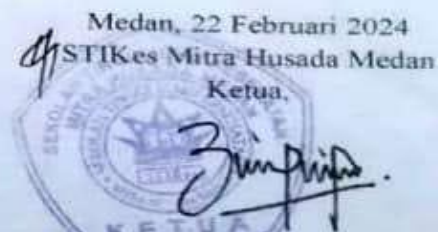 Medan, 22 Februari 2024
STIKes Mitra Husada Medan
Ketua,
KETUA